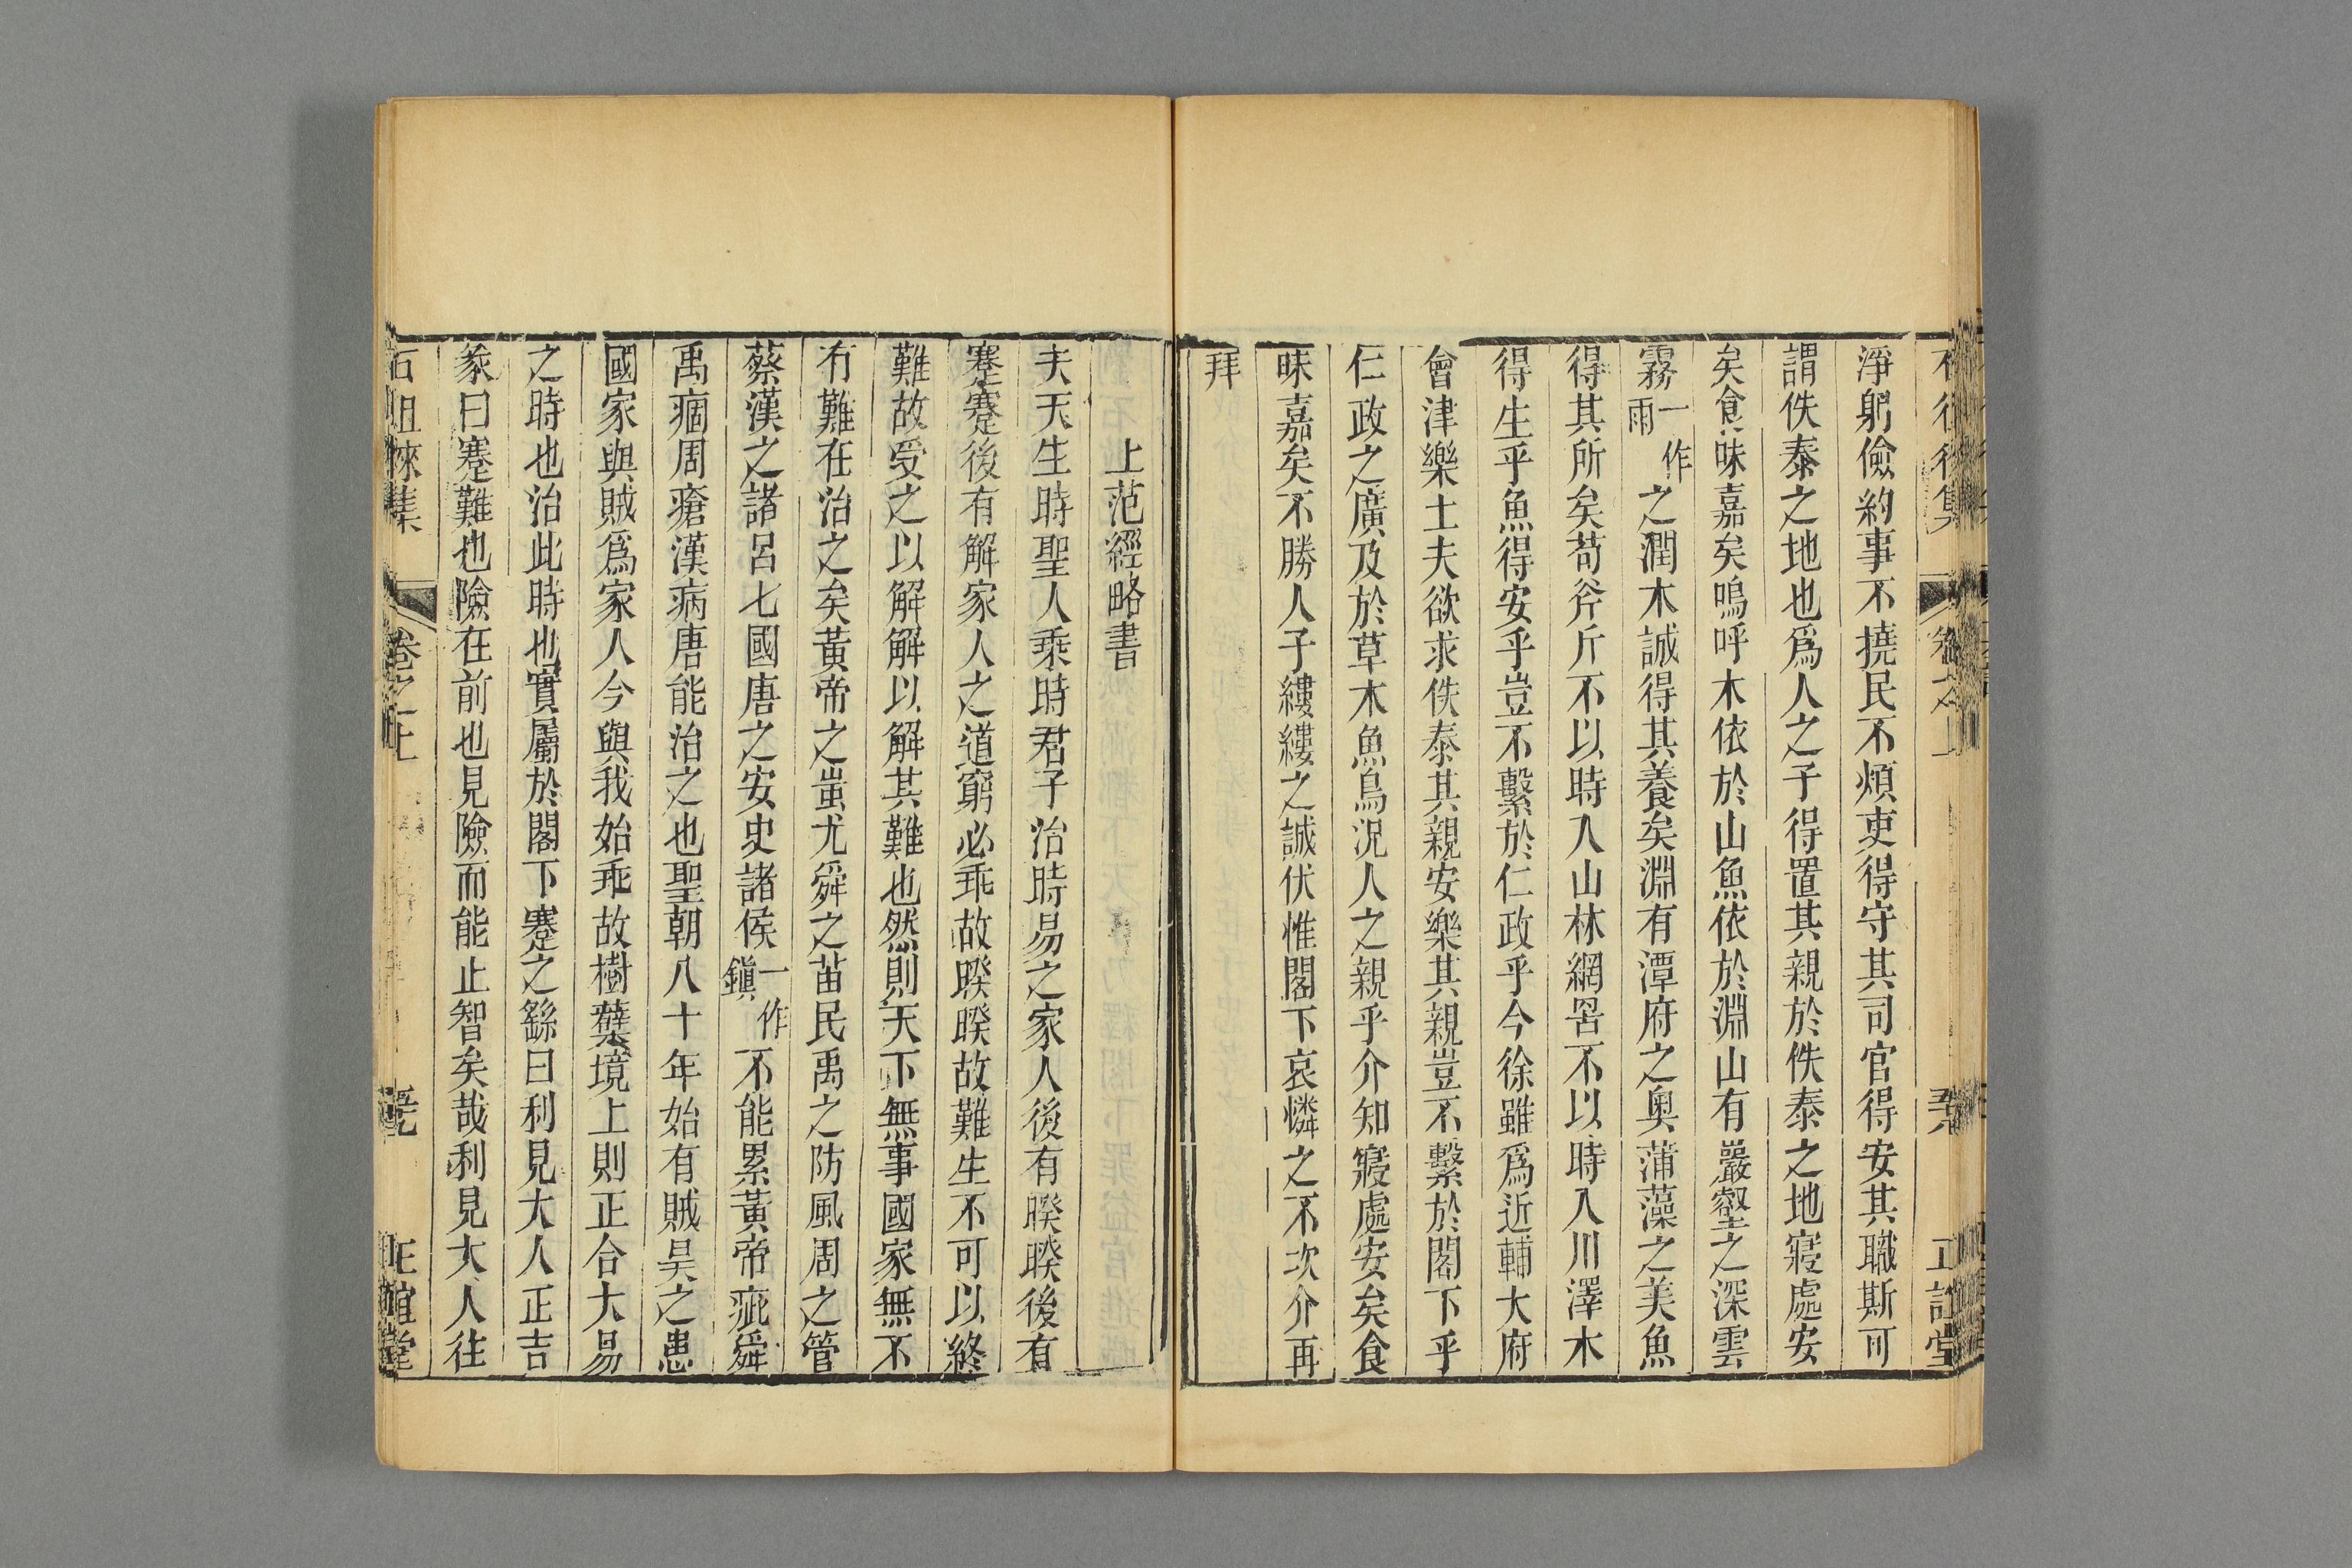 淨躬儉約事不撓民不煩吏得守其司官得安其職斯可
謂佚泰之地也爲人之子得置其親於佚泰之地寢處安
矣食味嘉矣嗚呼木依於山魚依於淵山有巖壑之深雲
霧一作雨之潤木誠得其養矣淵有潭府之奧蒲藻之美魚
得其所矣苟斧斤不以時入山林網罟不以時入川澤木
得生乎魚得安乎豈不繫於仁政乎今徐雖爲近輔大府
會津樂土夫欲求佚泰其親安樂其親豈不繫於閣下乎
仁政之廣及於草木魚鳥況人之親乎介知寢處安矣食
味嘉矣不勝人子縷縷之誠伏惟閣下哀憐之不次介再
拜
上范經略書
夫天生時聖人乘時君子治時易之家人後有暌暌後有
蹇蹇後有解家人之道窮必乖故暌暌故難生不可以終
難故受之以解解以解其難也然則天下無事國家無不
有難在治之矣黃帝之蚩尤舜之苗民禹之防風周之管
蔡漢之諸呂七國唐之安史諸侯一作鎭不能累黃帝疵舜
禹痼周瘡漢病唐能治之也聖朝八十年始有賊昊之患
國家與賊爲家人今與我始乖故樹蘖境上則正合大易
之時也治此時也實屬於閣下蹇之繇曰利見大人正吉
彖曰蹇難也險在前也見險而能止智矣哉利見大人往
石徂徠集 卷之上 正誼堂